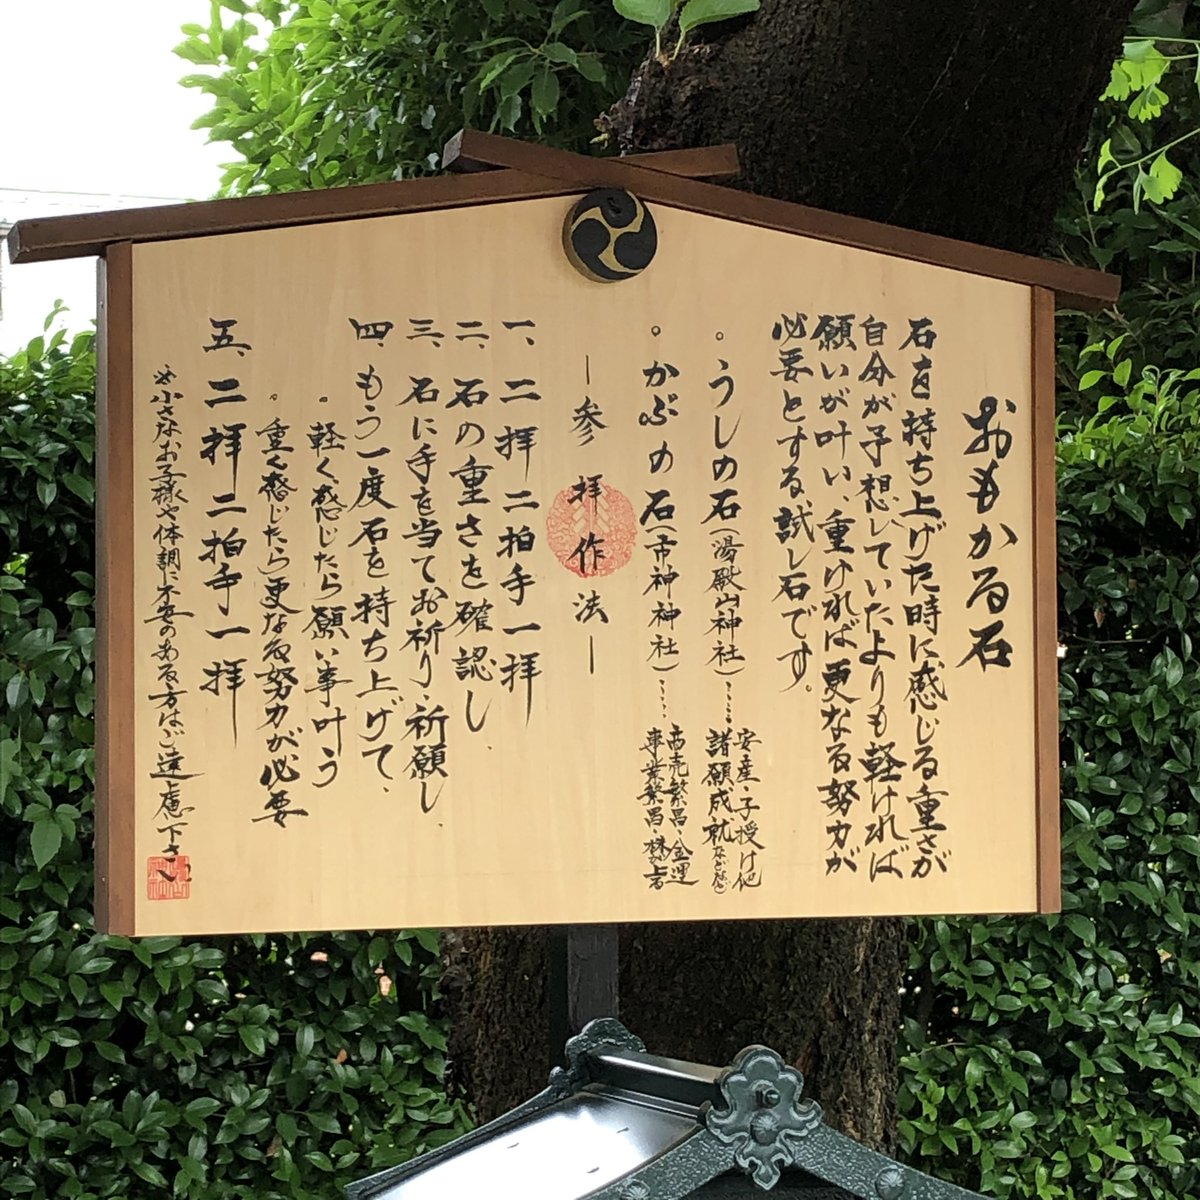 おもかる石
石を持ち上げた時に感じる重さが
自分が予想していたよりも軽ければ
願いが叶い、重ければ更なる努力が
必要とする、試し石です。
。うしの石(湯殿山神社)……安産・子授け他
諸願成就などなど
。かぶの石(市神神社)……商売繁昌、金運
事業繁昌、株上る
―参拝作法―
一、二拝二拍手一拝
二、石の重さを確認し、
三、石に手を当てお祈り・祈願し、
四、もう一度石を持ち上げて、
。軽く感じたら願い事叶う
。重く感じたら更なる努力が必要
五、二拝二拍手一拝
※小さなお子様や体調に不安のある方はご遠慮下さい